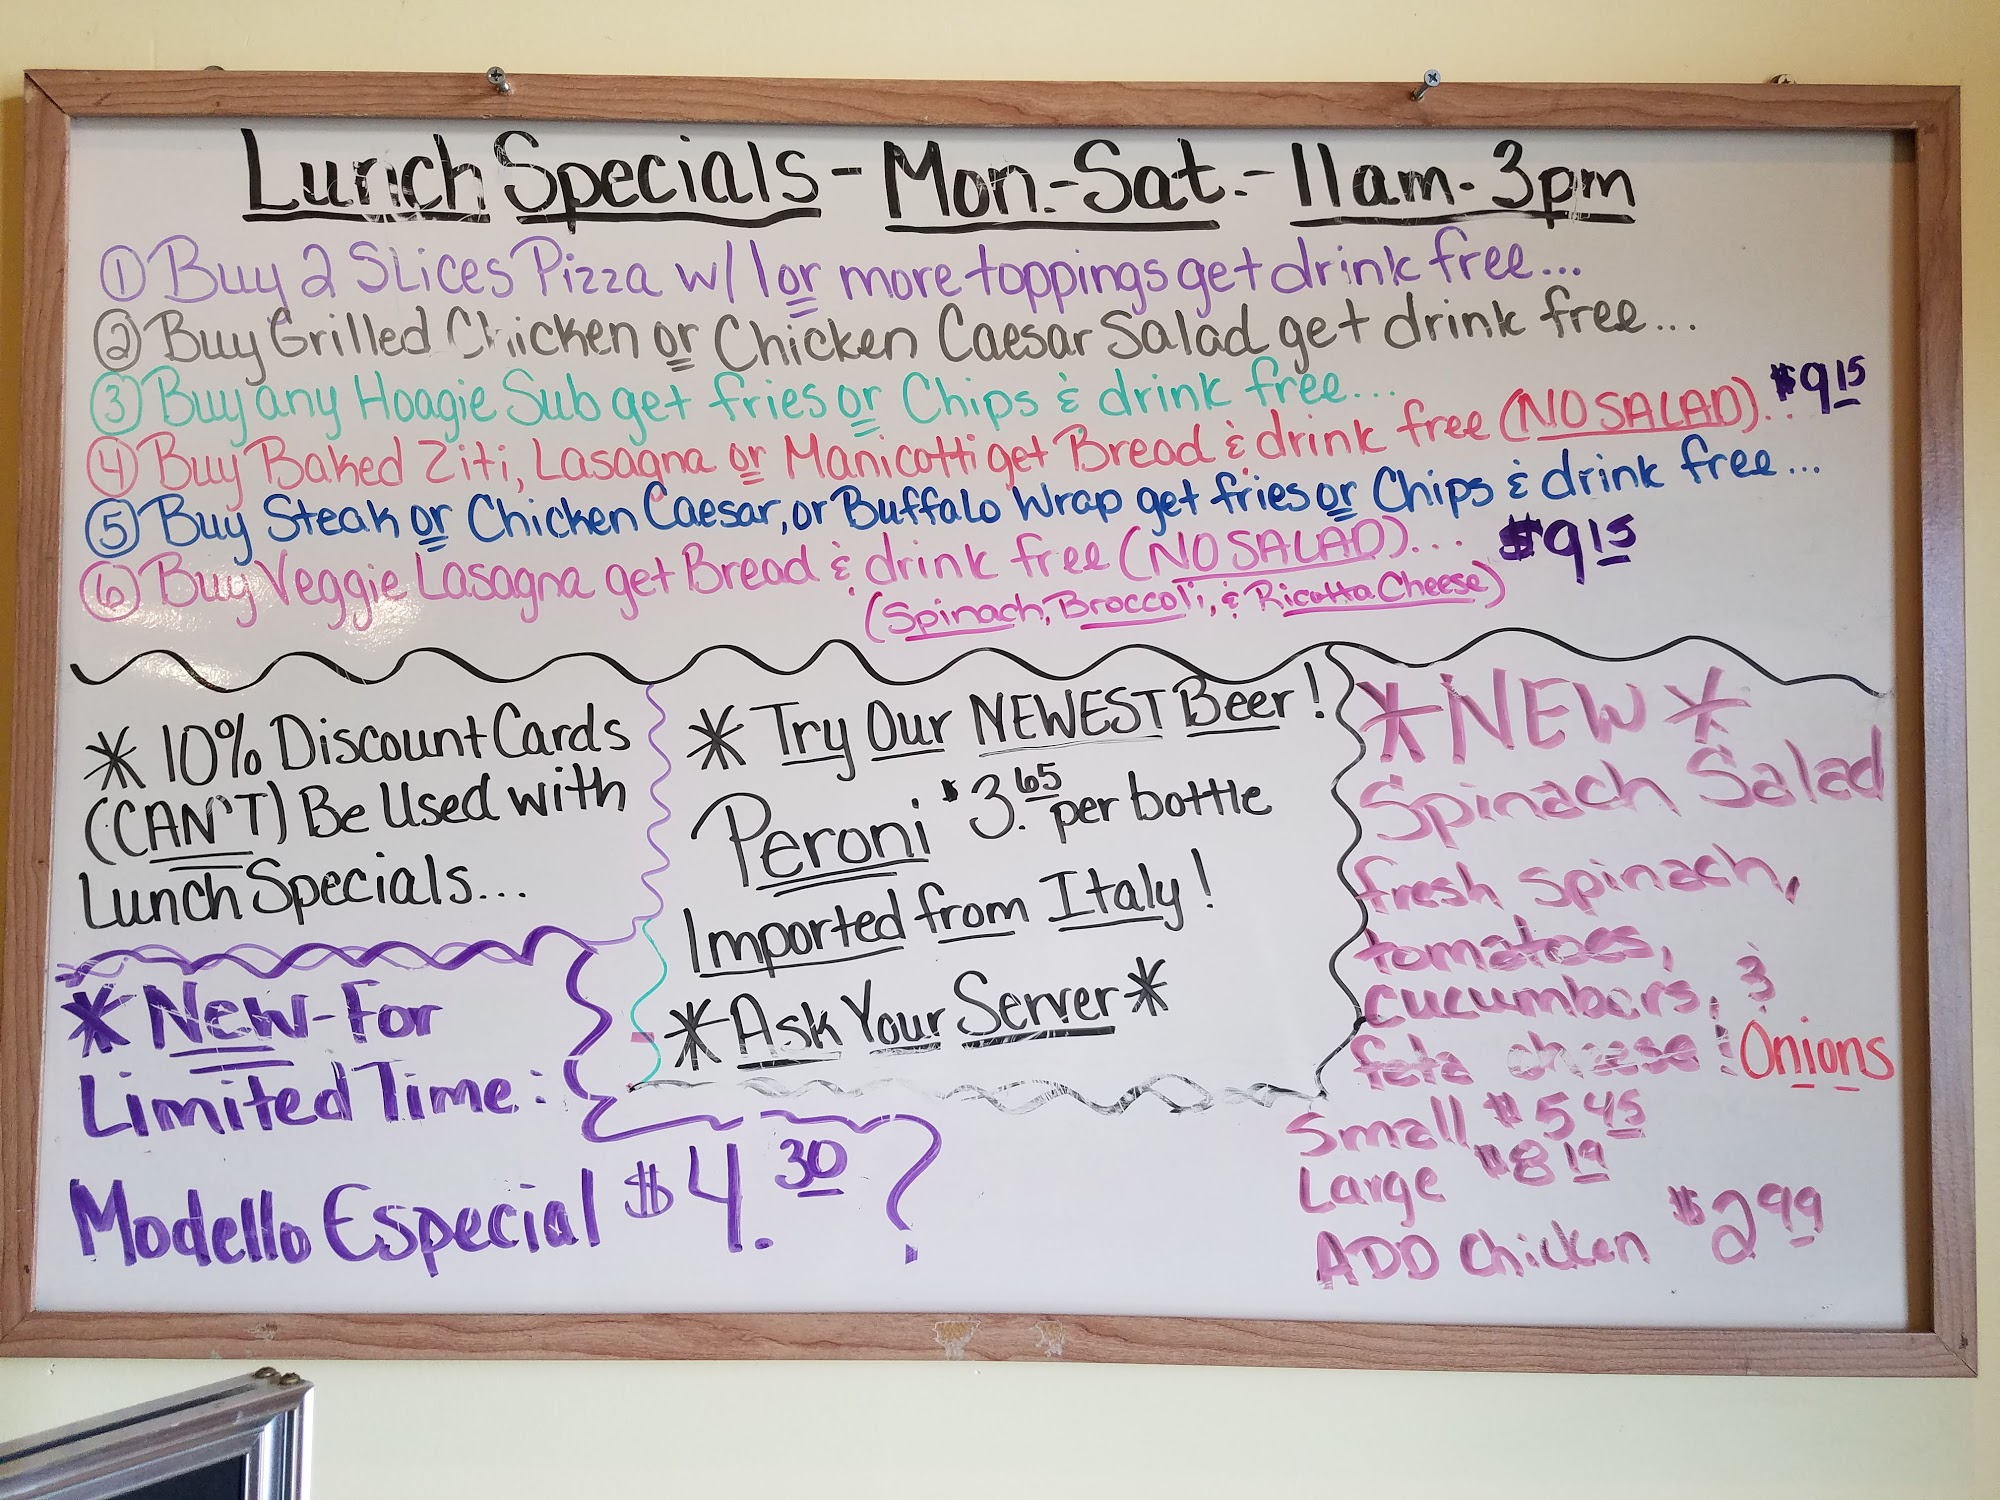 Lunch Specials - Mon.-Sat. - 11am - 3pm
① Buy 2 Slices Pizza w/ 1 or more toppings get drink free...
② Buy Grilled Chicken or Chicken Caesar Salad get drink free...
③ Buy any Hoagie Sub get fries or Chips & drink free...
④ Buy Baked Ziti, Lasagna or Manicotti get Bread & drink free (NO SALAD)... $9 15
⑤ Buy Steak or Chicken Caesar, or Buffalo Wrap get fries or Chips & drink free...
⑥ Buy Veggie Lasagna get Bread & drink free (NO SALAD)... $9 15
(Spinach, Broccoli, & Ricotta Cheese)
* 10% Discount Cards
(CAN'T) Be Used with
Lunch Specials...
* New - For
Limited Time:
Modello Especial $4.30
* Try Our NEWEST Beer!
Peroni $3.65 per bottle
Imported from Italy!
* Ask Your Server *
* NEW *
Spinach Salad
fresh spinach,
tomatoes,
cucumbers, &
feta cheese! Onions
Small $5 45
Large $8 19
ADD Chicken $2 99